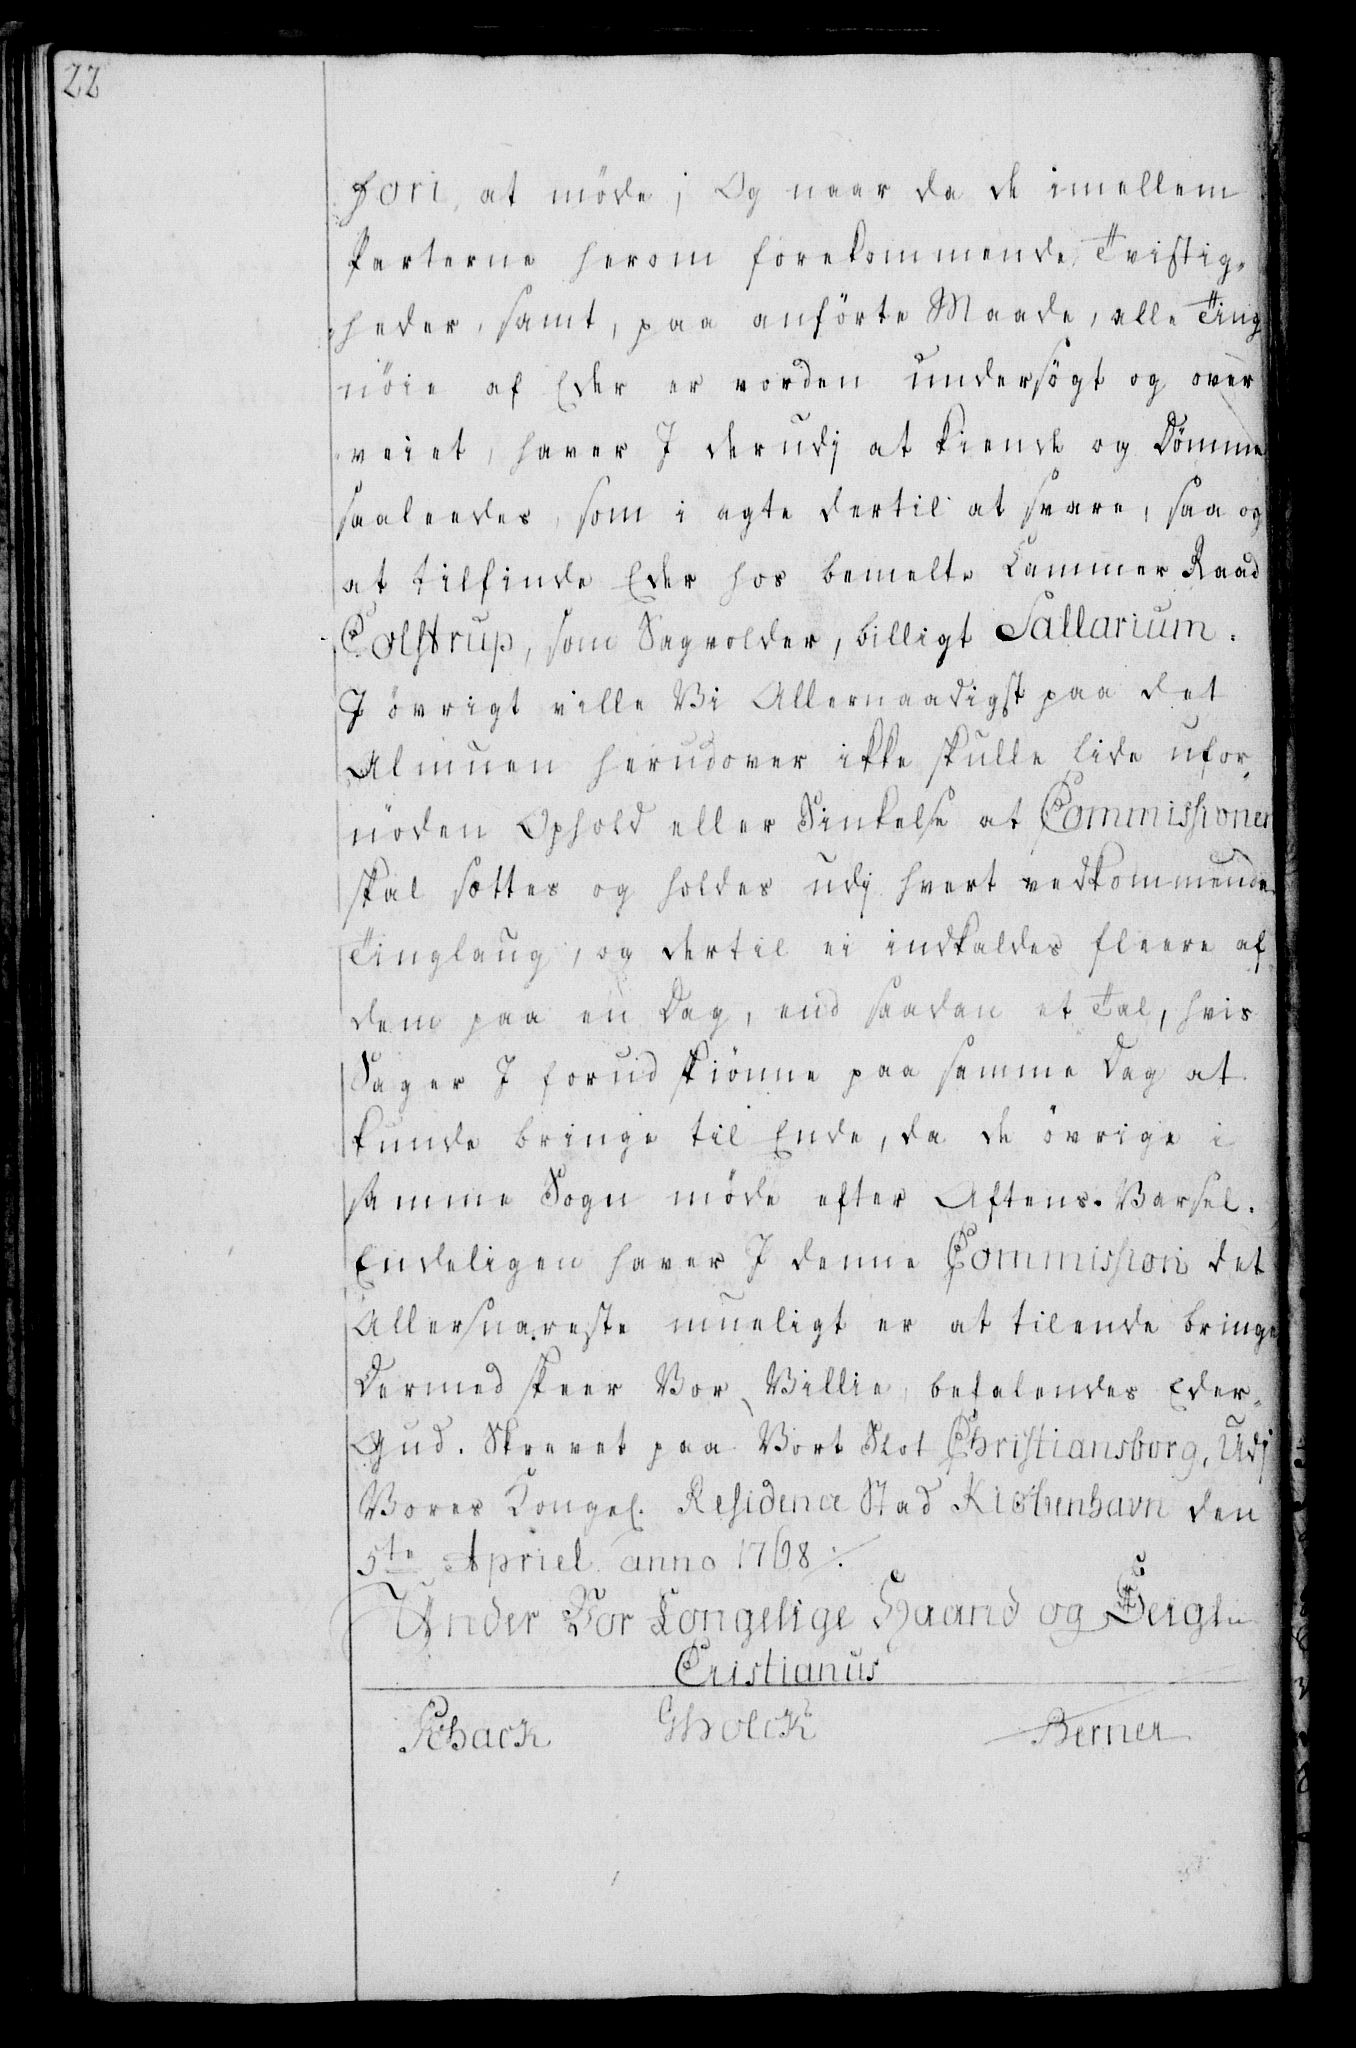 22
fori, at møde; Og naar da de imellem
Parterne herom forekommende Tvistig-
heder, samt, paa anførte Maade, alle Ting
nøie af Eder er vorden undersøgt og over
veiet, haver I derudj at kiende og Dømme
saaleedes, som i agte dertil at svare, saa og
at tilfinde Eder hos bemelte Cammer Raad
Colstrup, som Sagvolder, billigt Sallarium.
I øvrigt ville Vi Allernaadigst paa det
Almuen herudover ikke skulle lide ufor-
nøden Ophold eller Sinkelse at Commissionen
skal sættes og holdes udj hvert vedkommende
Tinglaug, og dertil ei indkaldes fleere af
dem paa en Dag, end saadan et Tal, hvis
Sager I forud skiønne paa samme Dag at
kunde bringe til Ende, da de øvrige i
samme Sogn møde efter Aftens-Varsel.
Endeligen haver I denne Commission det
Allersnareste mueligt er at tilende bringe
Dermed skeer Vor Villie, befalendes Eder
Gud. Skrevet paa Vort Slot Christiansborg, Udj
Vores Kongel. Residence Stad Kiøbenhavn den
5te Apriel anno 1768 ./.
Under Vor Kongelige Haand og Seigl
Cristianus
Schack GHolck Berner